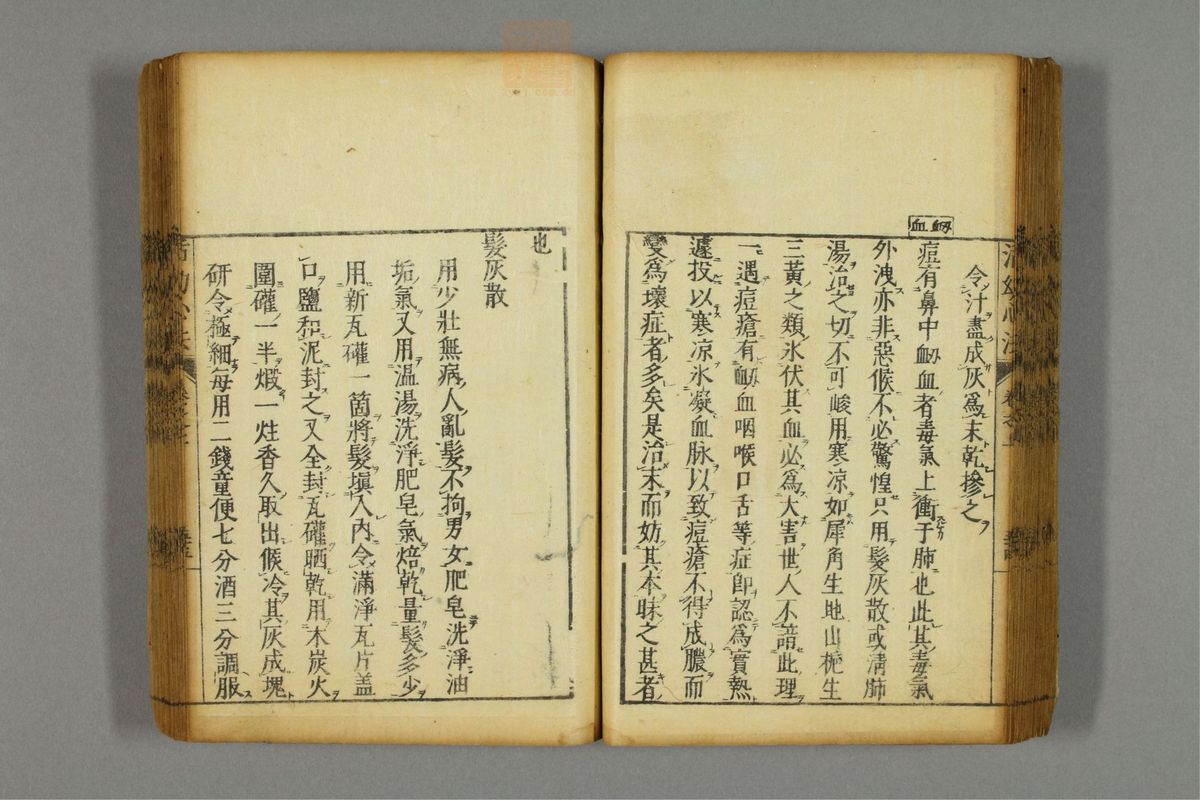 衂血
令汁盡成灰爲末乾摻之
痘有鼻中衂血者毒氣上衝于肺也此其毒氣
外洩亦非惡候不必驚惶只用髮灰散或淸肺
湯治之切不可峻用寒凉如犀角生地山梔生
三黃之類氷伏其血必爲大害世人不諳此理
一遇痘瘡有衂血咽喉口舌等症卽認爲實熱
遽投以寒凉氷凝血脉以致痘瘡不得成膿而
變爲壞症者多矣是治末而妨其本昧之甚者
也
髮灰散
用少壯無病人亂髮不拘男女肥皂洗淨油
垢氣又用溫湯洗淨肥皂氣焙乾量髮多少
用新瓦礶一箇將髮塡入內令滿淨瓦片盖
口鹽和泥封之又全封瓦礶晒乾用木炭火
圍礶一半煅一炷香久取出候冷其灰成塊
研令極細每用二錢童便七分酒三分調服